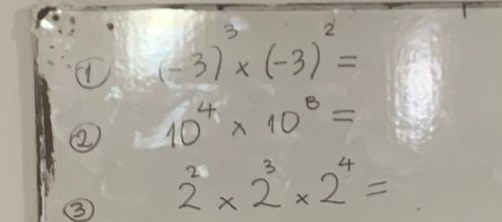 ① (-3)³ × (-3)² =
② 10⁴ × 10⁸ =
③ 2² × 2³ × 2⁴ =